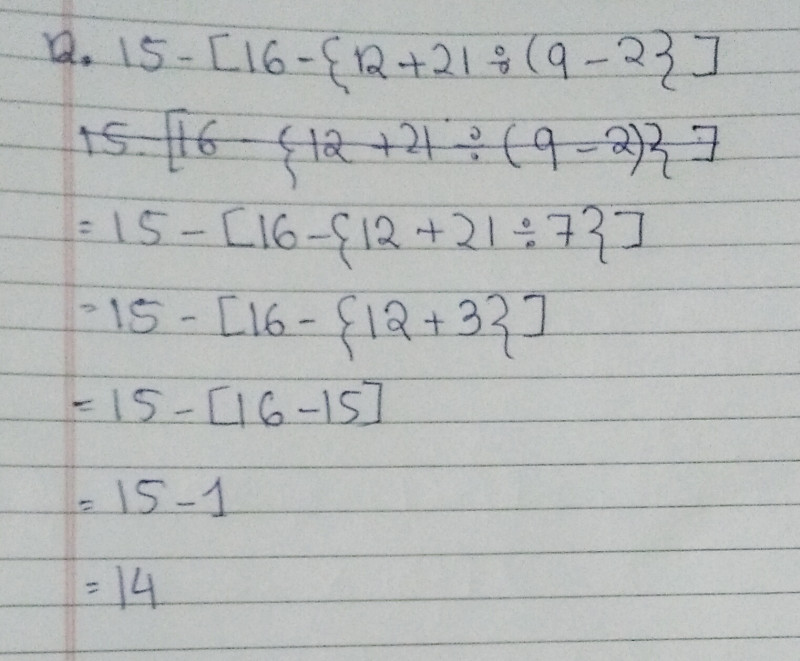 12. 15 - [16 - {12 + 21 ÷ (9 - 2}]
15 - [16 - {12 + 21 ÷ (9 - 2)}]
= 15 - [16 - {12 + 21 ÷ 7}]
= 15 - [16 - {12 + 3}]
= 15 - [16 - 15]
= 15 - 1
= 14